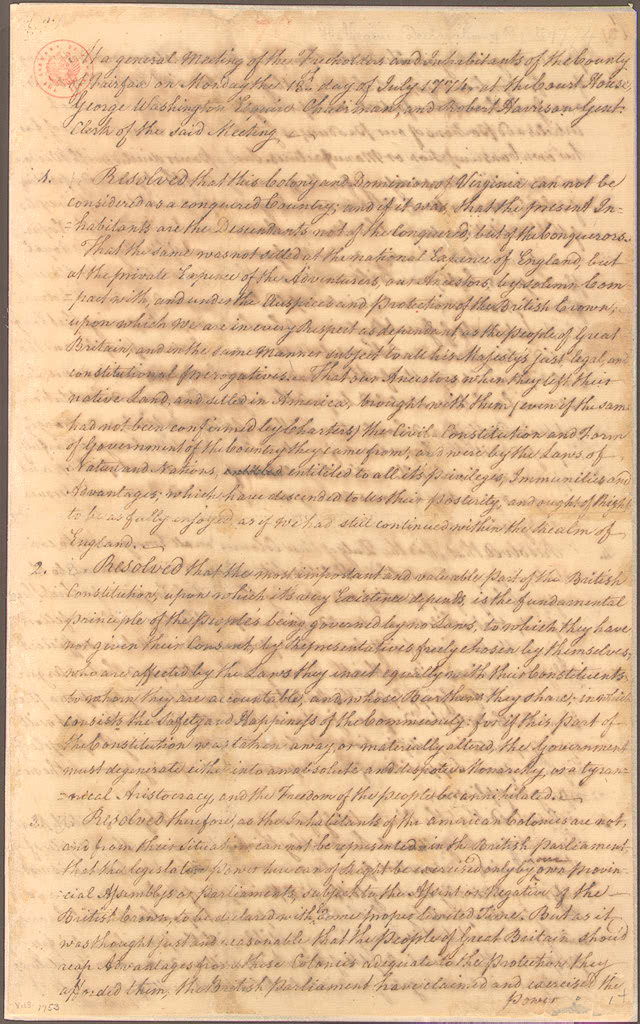 At a general Meeting of the Freeholders and Inhabitants of the County
of Fairfax on Monday the 18th day of July 1774, at the Court House,
George Washington Esquire Chairman, and Robert Harrison Gent.
Clerk of the said Meeting
1. Resolved that this Colony and Dominion of Virginia can not be
considered as a conquered Country; and if it was, that the present In-
-habitants are the Descendants not of the Conquered, but of the Conquerors.
That the same was not setled at the national Expence of England, but
at the private Expence of the Adventurers, our Ancestors, by solemn Com-
=pact with, and under the Auspices and Protection of the British Crown;
upon which we are in every Respect as dependant as the People of Great
Britain, and in the same Manner subject to all his Majesty's just, legal, and
constitutional Prerogatives. That our Ancestors, when they left their
native Land, and setled in America, brought with them (even if the same
had not been confirmed by Charters) the Civil-Constitution and Form
of Government of the Country they came from; and were by the Laws of
Nature and Nations, entitiled to all it's Privileges, Immunities and
Advantages; which have descended to us their Posterity, and ought of Right
to be as fully enjoyed, as if we had still continued within the Realm of
England.
2. Resolved that the most important and valuable Part of the British
Constitution, upon which it's very Existence depends, is the fundamental
Principle of the People's being governed by no Laws, to which they have
not given their Consent, by Representatives freely chosen by themselves;
who are affected by the Laws they enact equally with their Constituents;
to whom they are accountable, and whose Burthens they share; in which
consists the Safety and Happiness of the Community: for if this Part of
the Constitution was taken away, or materially altered, the Government
must degenerate either into an absolute and despotic Monarchy, or a tyran-
=nical Aristocracy, and the Freedom of the People be annihilated.
3. Resolved therefore, as the Inhabitants of the american Colonies are not,
and from their Situation can not be represented in the British Parliament,
that the legislative Power here can of Right be exercised only by our own Provin-
=cial Assemblys or Parliaments, subject to the Assent or Negative of the
British Crown, to be declared within some proper limited Time. But as it
was thought just and reasonable that the People of Great Britain shou'd
reap Advantages from these Colonies adequate to the Protection they
afforded them, the British Parliament have claimed and exercised the
Power
1753